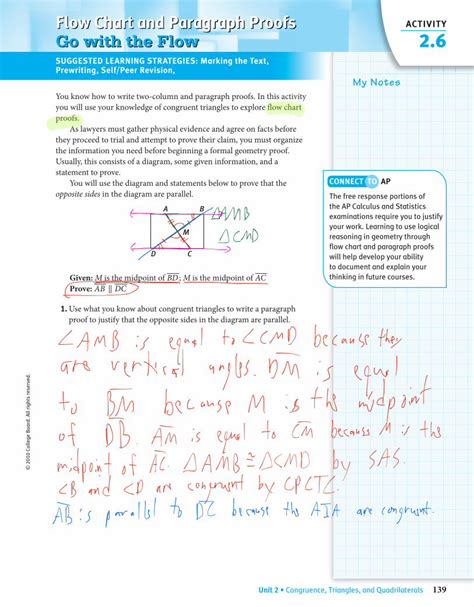 Flow Chart and Paragraph Proofs
Go with the Flow
SUGGESTED LEARNING STRATEGIES: Marking the Text,
Prewriting, Self/Peer Revision,
ACTIVITY
2.6
My Notes
You know how to write two-column and paragraph proofs. In this activity
you will use your knowledge of congruent triangles to explore flow chart
proofs.
As lawyers must gather physical evidence and agree on facts before
they proceed to trial and attempt to prove their claim, you must organize
the information you need before beginning a formal geometry proof.
Usually, this consists of a diagram, some given information, and a
statement to prove.
You will use the diagram and statements below to prove that the
opposite sides in the diagram are parallel.
A B
M
D C
△AMB
△CMD
CONNECT TO AP
The free response portions of
the AP Calculus and Statistics
examinations require you to justify
your work. Learning to use logical
reasoning in geometry through
flow chart and paragraph proofs
will help develop your ability
to document and explain your
thinking in future courses.
Given: M is the midpoint of BD; M is the midpoint of AC
Prove: AB ∥ DC
1. Use what you know about congruent triangles to write a paragraph
proof to justify that the opposite sides in the diagram are parallel.
∠AMB is equal to ∠CMD because they
are vertical angles. DM is equal
to BM because M is the midpoint
of DB. AM is equal to CM because M is the
midpoint of AC. △AMB ≅ △CMD by SAS.
∠B and ∠D are congruent by CPCTC.
AB is parallel to DC because the AIA are congruent.
© 2010 College Board. All rights reserved.
Unit 2 • Congruence, Triangles, and Quadrilaterals 139